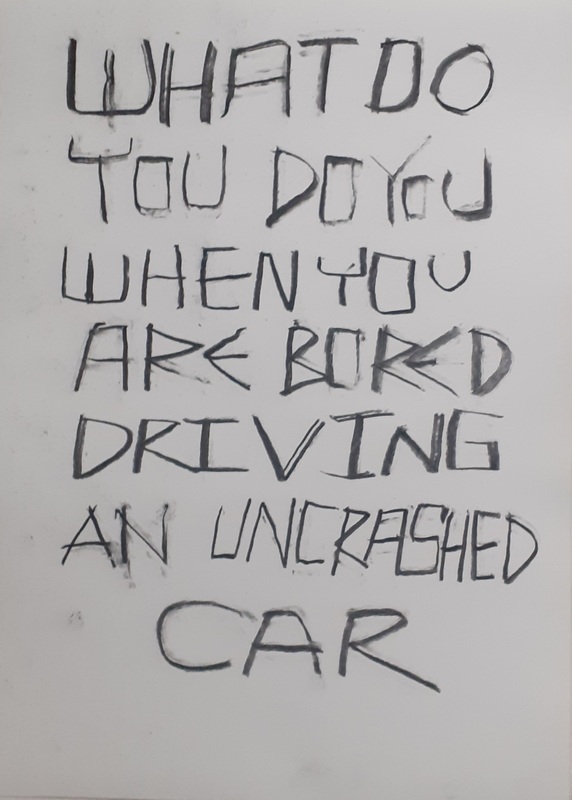 WHAT DO
YOU DO YOU
WHEN YOU
ARE BORED
DRIVING
AN UNCRASHED
CAR